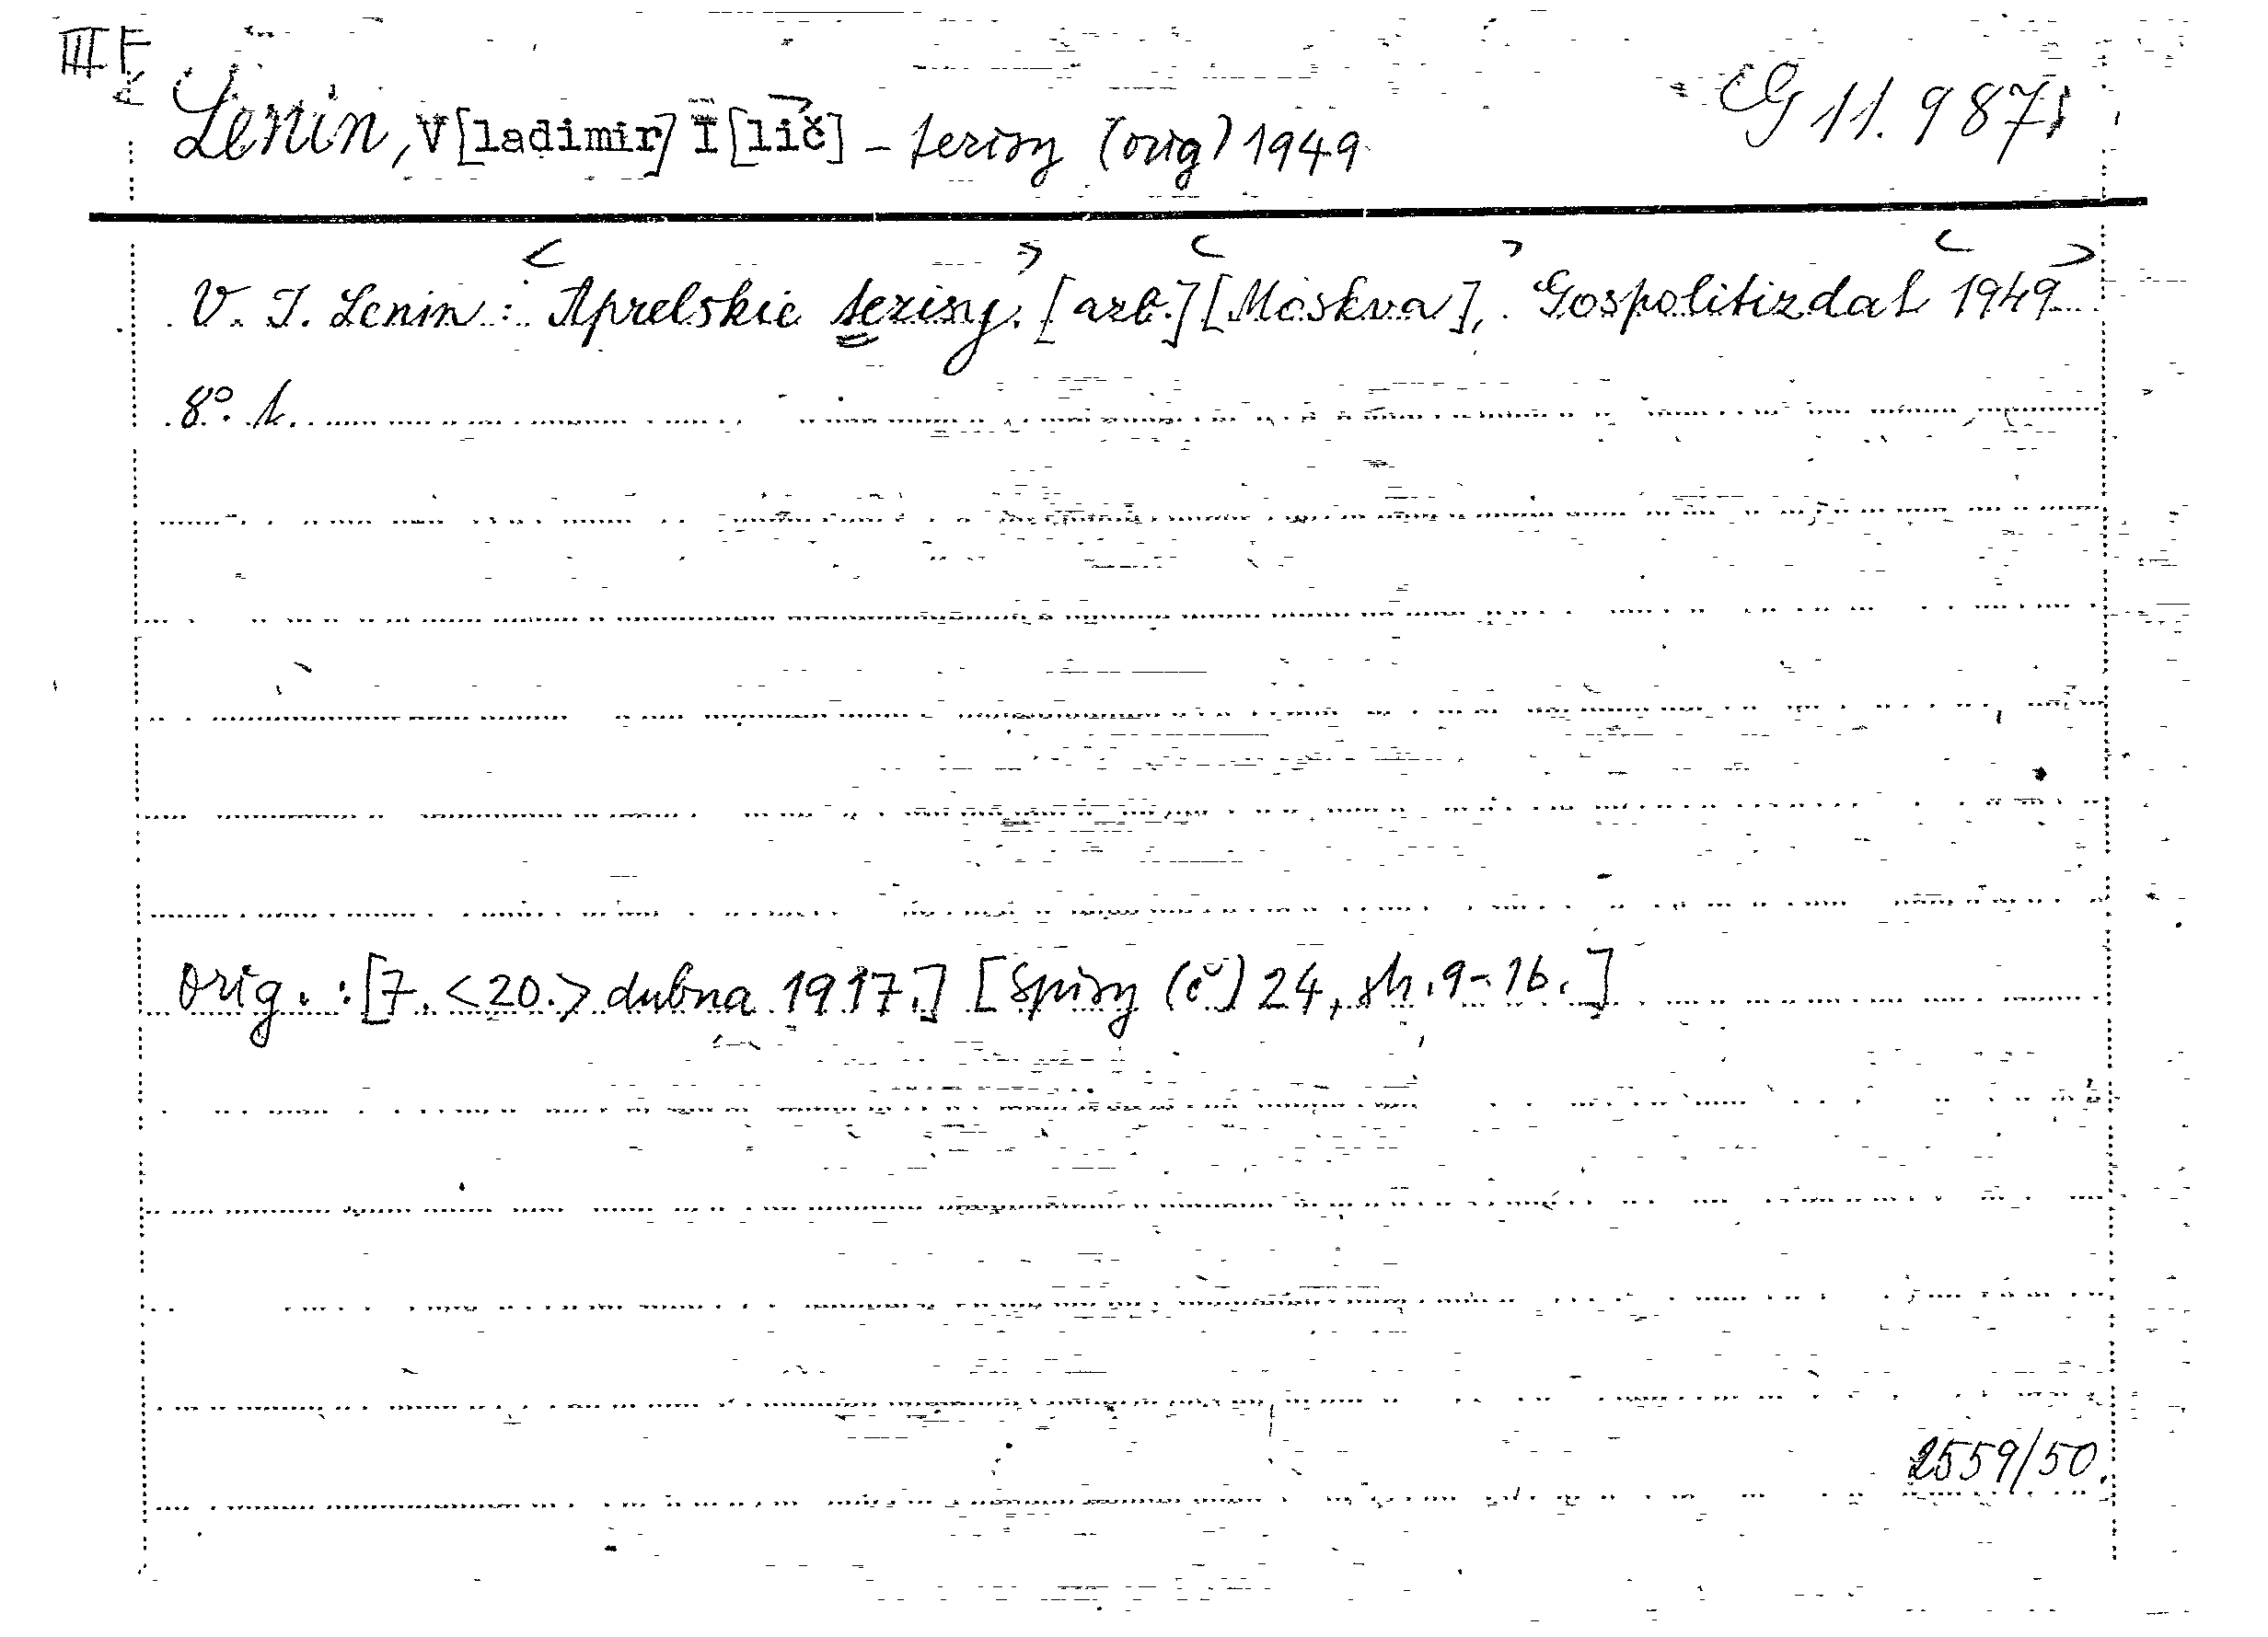 III F
Lenin, V[ladimir] I[lič] - tezisy (orig) 1949
G 11.987
V. I. Lenin: Aprelskie tezisy. [azb.] [Moskva], Gospolitizdat 1949
8°. 1.
Orig.: [7. <20.> dubna 1917.] [Spisy (č) 24, str. 9-16.]
2559/50